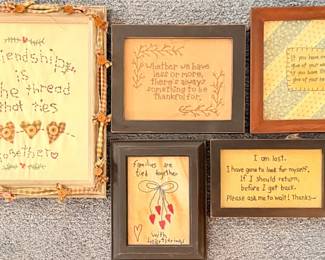 Friendship
is
the thread
that ties
together
Whether we have
less or more,
there's always
something to be
thankful for.
If you have
give of your
If you have
give of your
families are
tied together
with
heartstrings
I am lost.
I have gone to look for myself,
If I should return,
before I get back.
Please ask me to wait! Thanks~